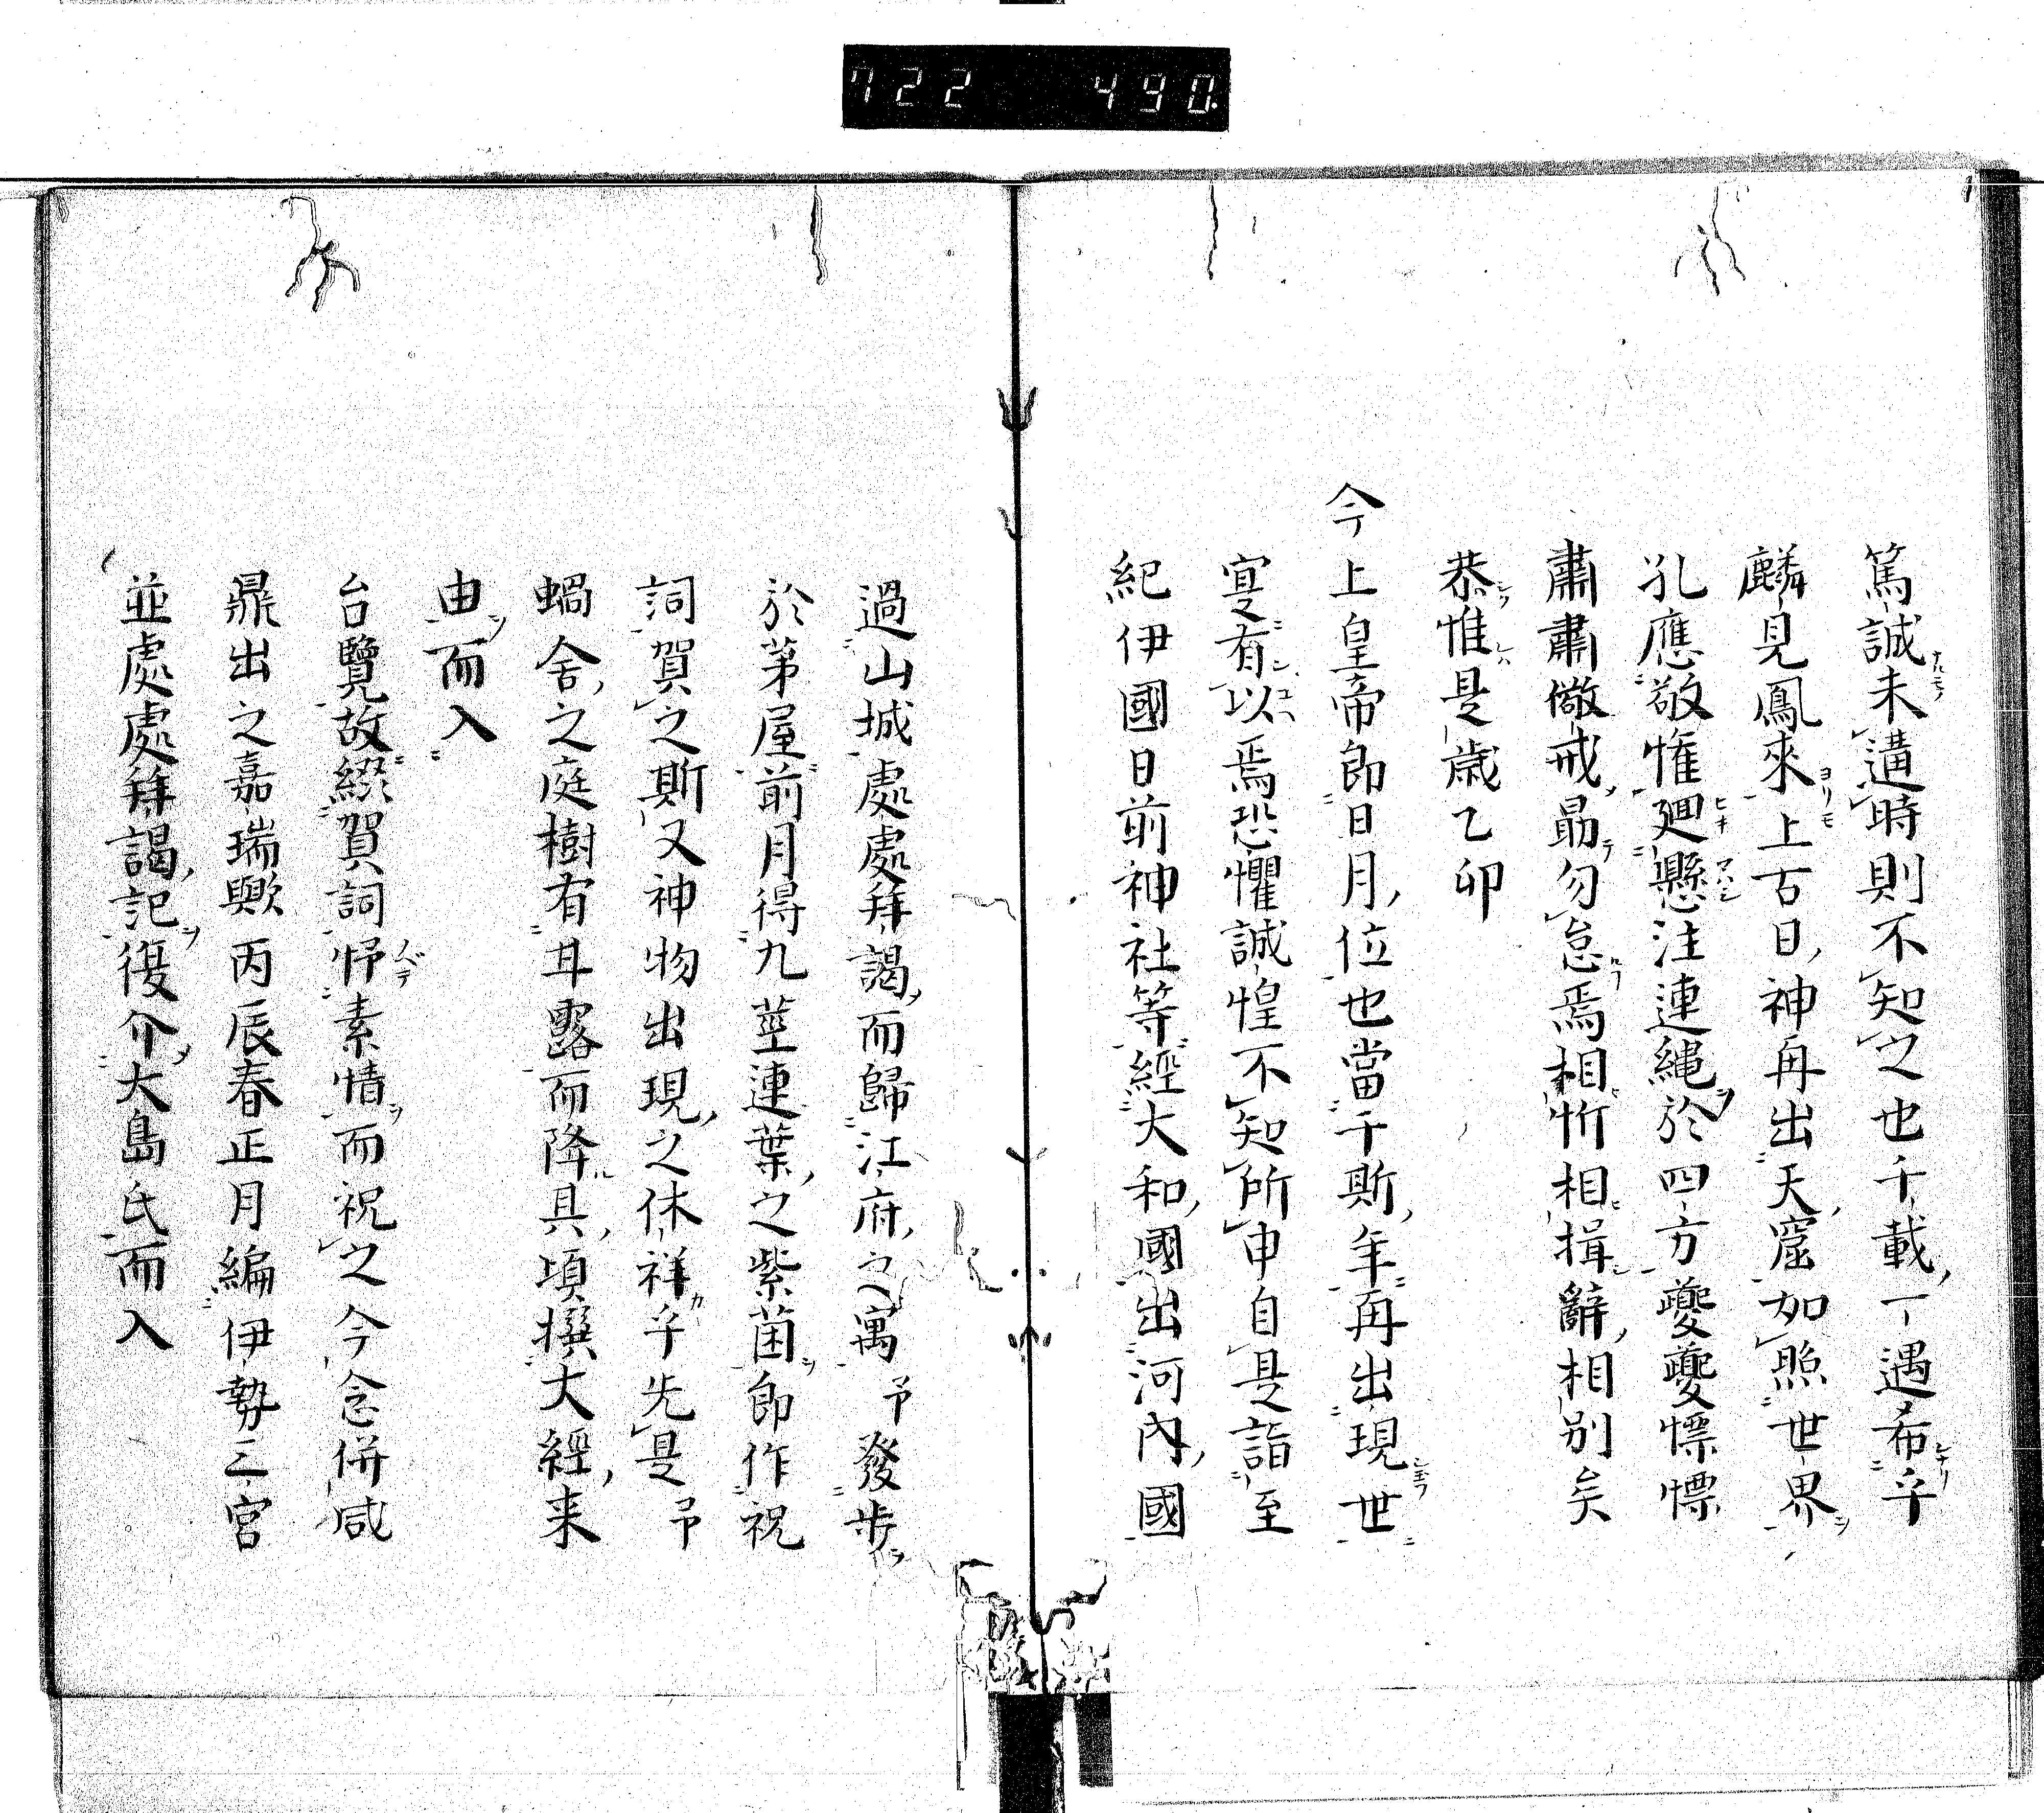 722 490.
篤誠未遘時則不知之也千載一遇希乎
麟見鳳來上古日神再出天窟如照世界
孔應敬惟廻懸注連縄於四方夔夔慓慓
肅肅儆戒勗勿怠焉相忻相揖辭相別矣
恭惟是歳乙卯
今上皇帝卽日月位也當于斯年再出現世
寔有以焉恐懼誠惶不知所申自是詣至
紀伊國日前神社等經大和國出河內國
過山城處處拜謁而歸江府之寓予發步
於茅屋前月得九莖連葉之紫菌卽作祝
詞賀之斯又神物出現之休祥乎先是予
蝸舍之庭樹有甘露而降具頃撰大經来
由而入
台覽故綴賀詞忬素情而祝之今念併咸
鼎出之嘉瑞歟丙辰春正月編伊勢三宮
並處處拜謁記復介大島氏而入